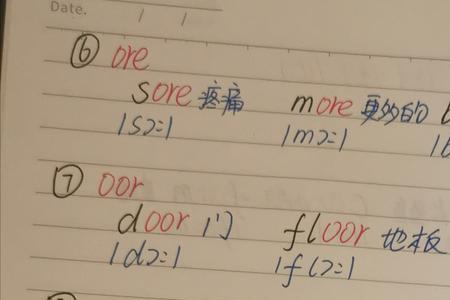 Date.
⑥ ore
sore 疼痛 more 更多的
/sɔ:/ /mɔ:/
⑦ oor
door 门 floor 地板
/dɔ:/ /flɔ:/